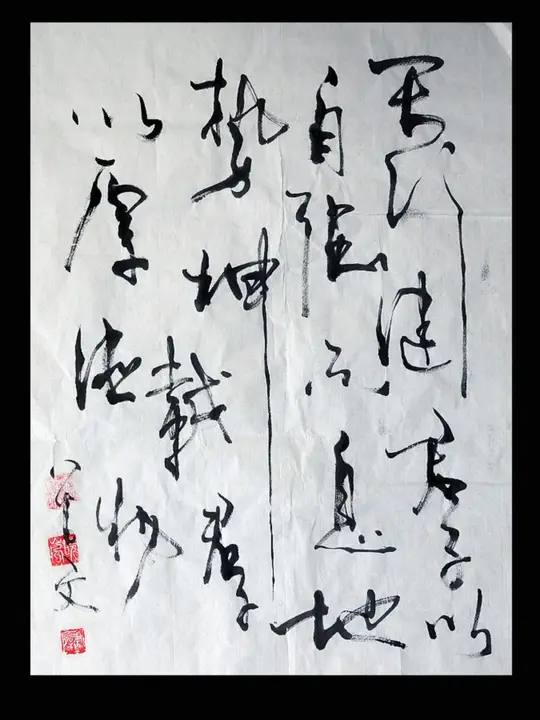 天行健君子以
自强不息地
势坤君子
以厚德載物
文